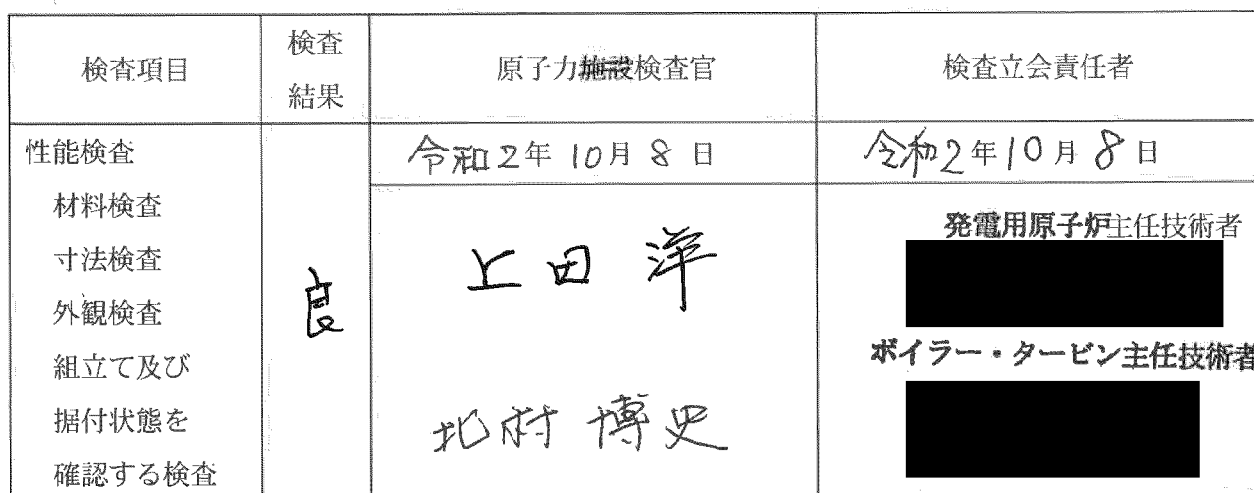 検査項目
検査
結果
原子力施設検査官
検査立会責任者
性能検査
材料検査
寸法検査
外観検査
組立て及び
据付状態を
確認する検査
良
令和2年10月8日
上田 洋
北村 博史
令和2年10月8日
発電用原子炉主任技術者
ボイラー・タービン主任技術者